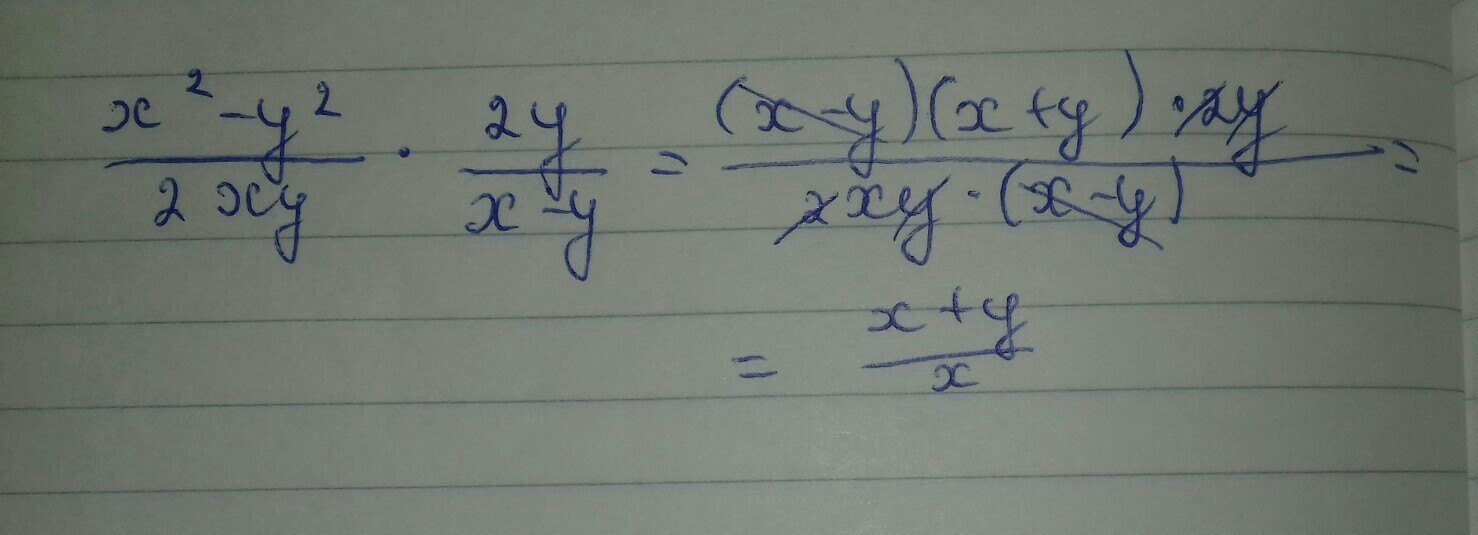 x² - y² / 2xy · 2y / x - y = (x - y)(x + y) · 2y / 2xy · (x - y) =
= x + y / x